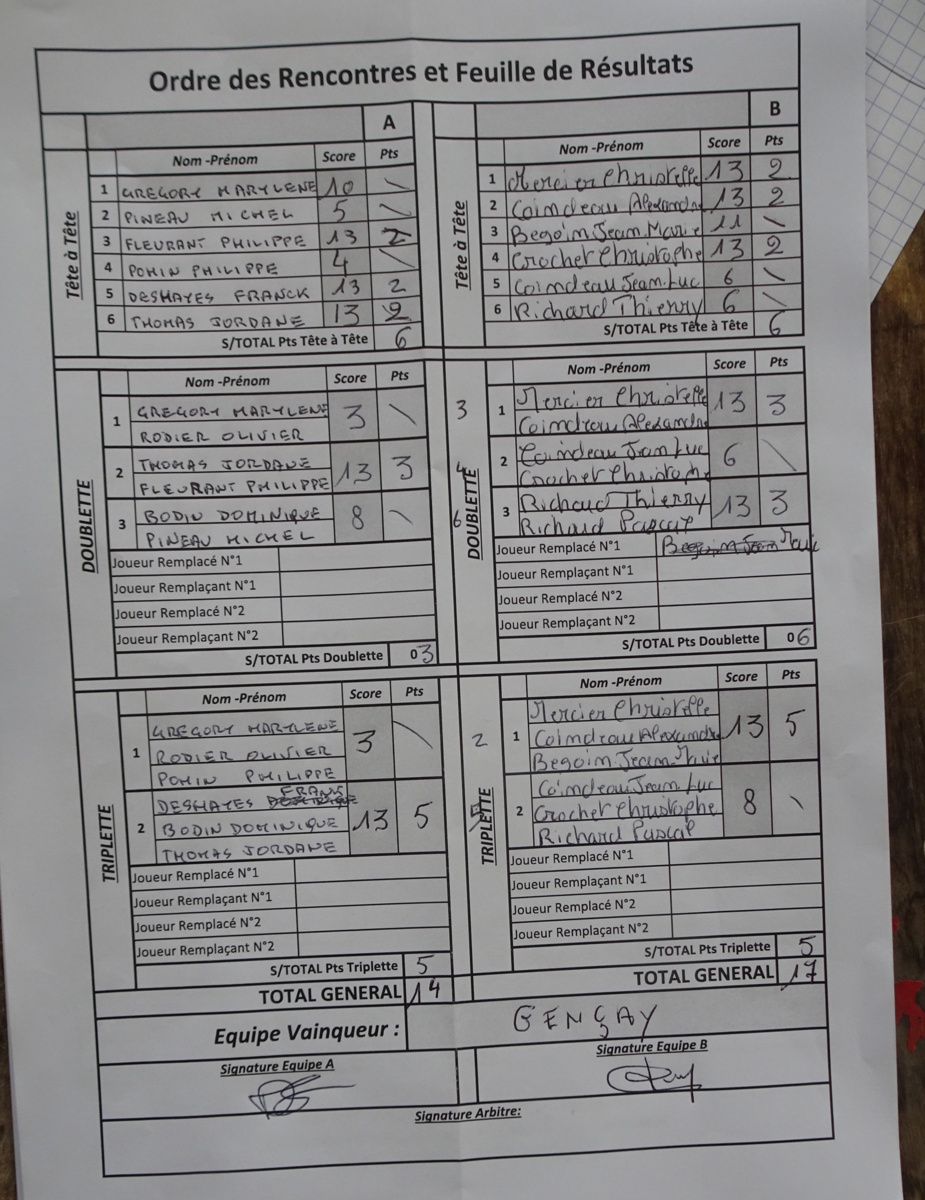 Ordre des Rencontres et Feuille de Résultats
A
Tête à Tête
Nom -Prénom Score Pts
1 GREGORY MARYLENE 10 \
2 PINEAU MICHEL 5 \
3 FLEURANT PHILIPPE 13 2
4 POHIN PHILIPPE 4 \
5 DESHAYES FRANCK 13 2
6 THOMAS JORDANE 13 2
S/TOTAL Pts Tête à Tête 6
DOUBLETTE
Nom -Prénom Score Pts
1 GREGORY MARYLENE 3 \
RODIER OLIVIER
2 THOMAS JORDANE 13 3
FLEURANT PHILIPPE
3 BODIN DOMINIQUE 8 \
PINEAU MICHEL
Joueur Remplacé N°1
Joueur Remplaçant N°1
Joueur Remplacé N°2
Joueur Remplaçant N°2
S/TOTAL Pts Doublette 03
TRIPLETTE
Nom -Prénom Score Pts
1 GREGORY MARYLENE 3 \
RODIER OLIVIER
POHIN PHILIPPE
2 DESHAYES FRANK 13 5
BODIN DOMINIQUE
THOMAS JORDANE
Joueur Remplacé N°1
Joueur Remplaçant N°1
Joueur Remplacé N°2
Joueur Remplaçant N°2
S/TOTAL Pts Triplette 5
TOTAL GENERAL 14
B
Tête à Tête
Nom -Prénom Score Pts
1 Mercier Christelle 13 2
2 Coindeau Alexandre 13 2
3 Begoin Jean Marie 11 \
4 Crochet Christophe 13 2
5 Coindeau Jean.Luc 6 \
6 Richard Thierry 6 \
S/TOTAL Pts Tête à Tête 6
3
6
DOUBLETTE
Nom -Prénom Score Pts
1 Mercier Christelle 13 3
Coindeau Alexandre
2 Coindeau Jean Luc 6 \
Crochet Christophe
3 Richard Thierry 13 3
Richard Pascal
Joueur Remplacé N°1 Begoin Jean Marie
Joueur Remplaçant N°1
Joueur Remplacé N°2
Joueur Remplaçant N°2
S/TOTAL Pts Doublette 06
2
TRIPLETTE
Nom -Prénom Score Pts
1 Mercier Christelle 13 5
Coindeau Alexandre
Begoin Jean Marie
2 Coindeau Jean Luc 8 \
Crochet Christophe
Richard Pascal
Joueur Remplacé N°1
Joueur Remplaçant N°1
Joueur Remplacé N°2
Joueur Remplaçant N°2
S/TOTAL Pts Triplette 5
TOTAL GENERAL 17
Equipe Vainqueur : GENÇAY
Signature Equipe A
Signature Equipe B
Signature Arbitre: